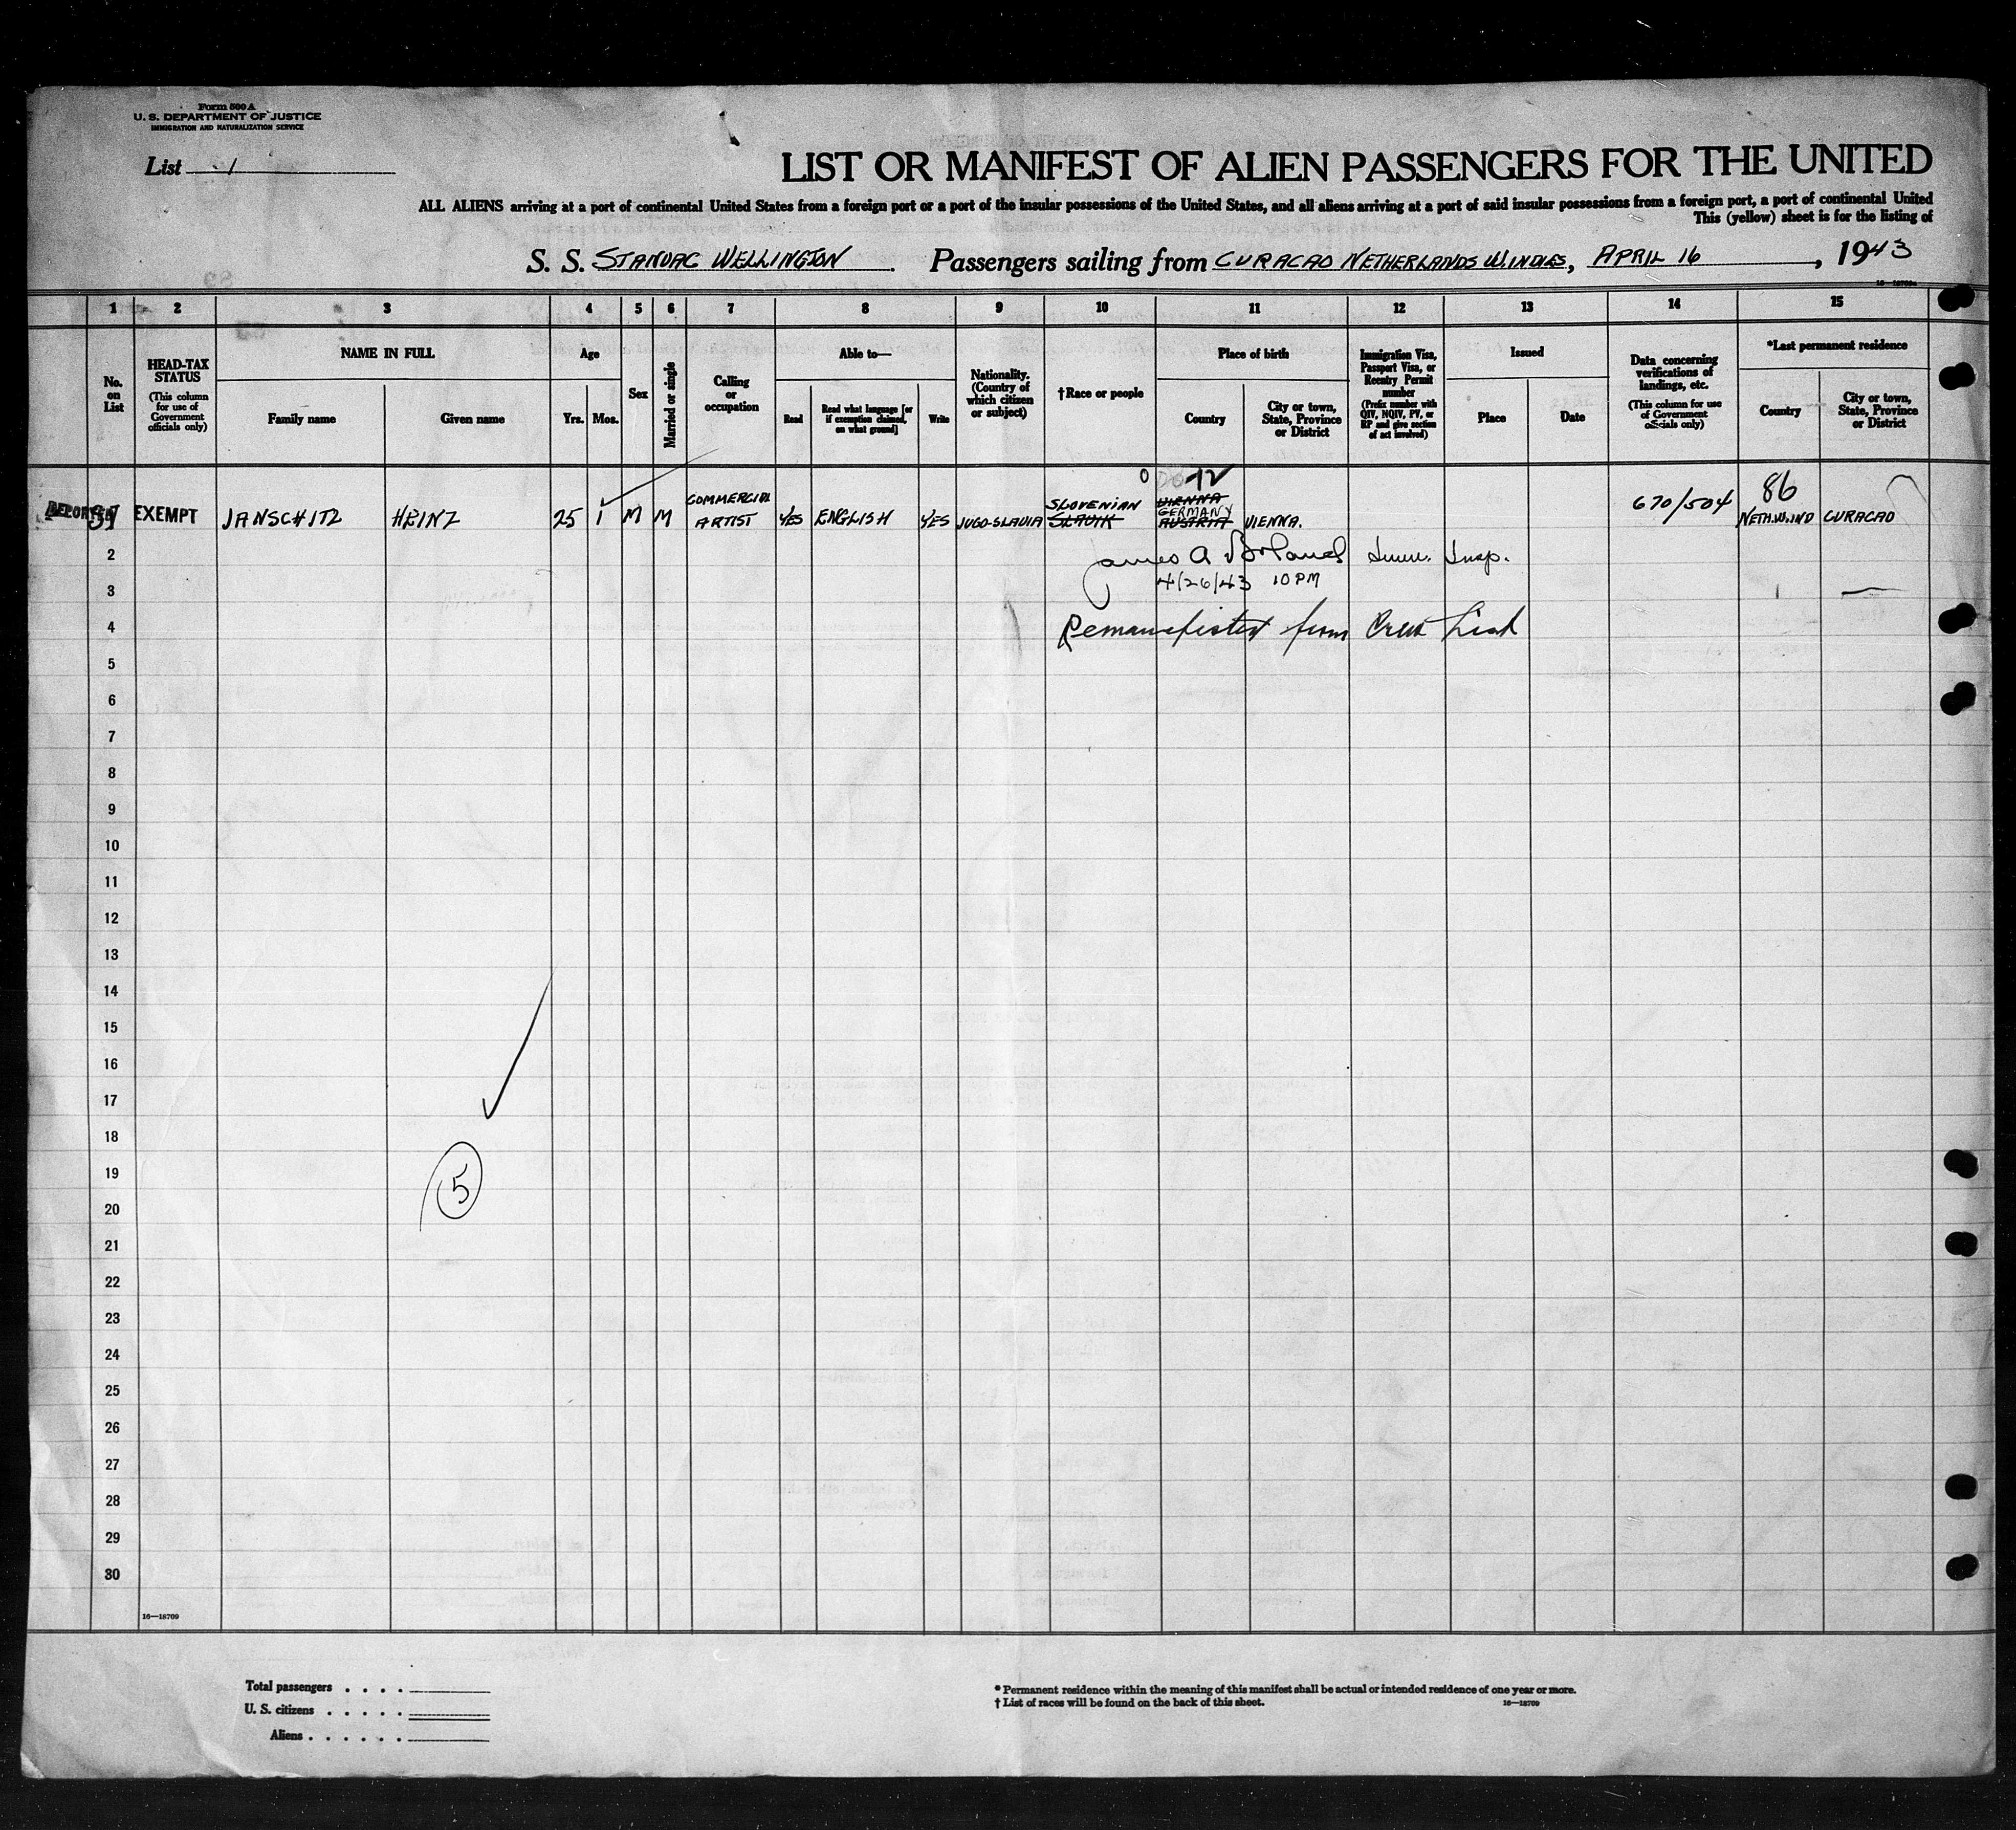 Form 500 A
U. S. DEPARTMENT OF JUSTICE
IMMIGRATION AND NATURALIZATION SERVICE
List 1
LIST OR MANIFEST OF ALIEN PASSENGERS FOR THE UNITED
ALL ALIENS arriving at a port of continental United States from a foreign port or a port of the insular possessions of the United States, and all aliens arriving at a port of said insular possessions from a foreign port, a port of continental United
This (yellow) sheet is for the listing of
S. S. STANVAC WELLINGTON. Passengers sailing from CURACAO NETHERLANDS W.INDIES, APRIL 16, 1943
1 2 3 4 5 6 7 8 9 10 11 12 13 14 15
No. on List
HEAD-TAX STATUS (This column for use of Government officials only)
NAME IN FULL
Family name
Given name
Age
Yrs. Mos.
Sex
Married or single
Calling or occupation
Able to—
Read
Read what language [or if exemption claimed, on what ground]
Write
Nationality. (Country of which citizen or subject)
†Race or people
Place of birth
Country
City or town, State, Province or District
Immigration Visa, Passport Visa, or Reentry Permit number (Prefix number with QIV, NQIV, PV, or RP and give section of act involved)
Issued
Place
Date
Data concerning verifications of landings, etc. (This column for use of Government officials only)
*Last permanent residence
Country
City or town, State, Province or District
0 12 86
COMMERCIAL SLOVENIAN VIENNA
EXEMPT JANSCHITZ HEINZ 25 1 M M ARTIST YES ENGLISH YES JUGO-SLAVIA SLAVIK GERMANY AUSTRIA VIENNA. 670/504 NETH.W.IND CURACAO
2 James A Boland Imm. Insp.
3 4/26/43 10 PM
4 Remanifested from Crew List
5
6
7
8
9
10
11
12
13
14
15
16
17
18
19
5
20
21
22
23
24
25
26
27
28
29
30
16—18709
Total passengers . . . .
U. S. citizens . . . . .
Aliens . . . . . .
* Permanent residence within the meaning of this manifest shall be actual or intended residence of one year or more.
† List of races will be found on the back of this sheet. 16—18709